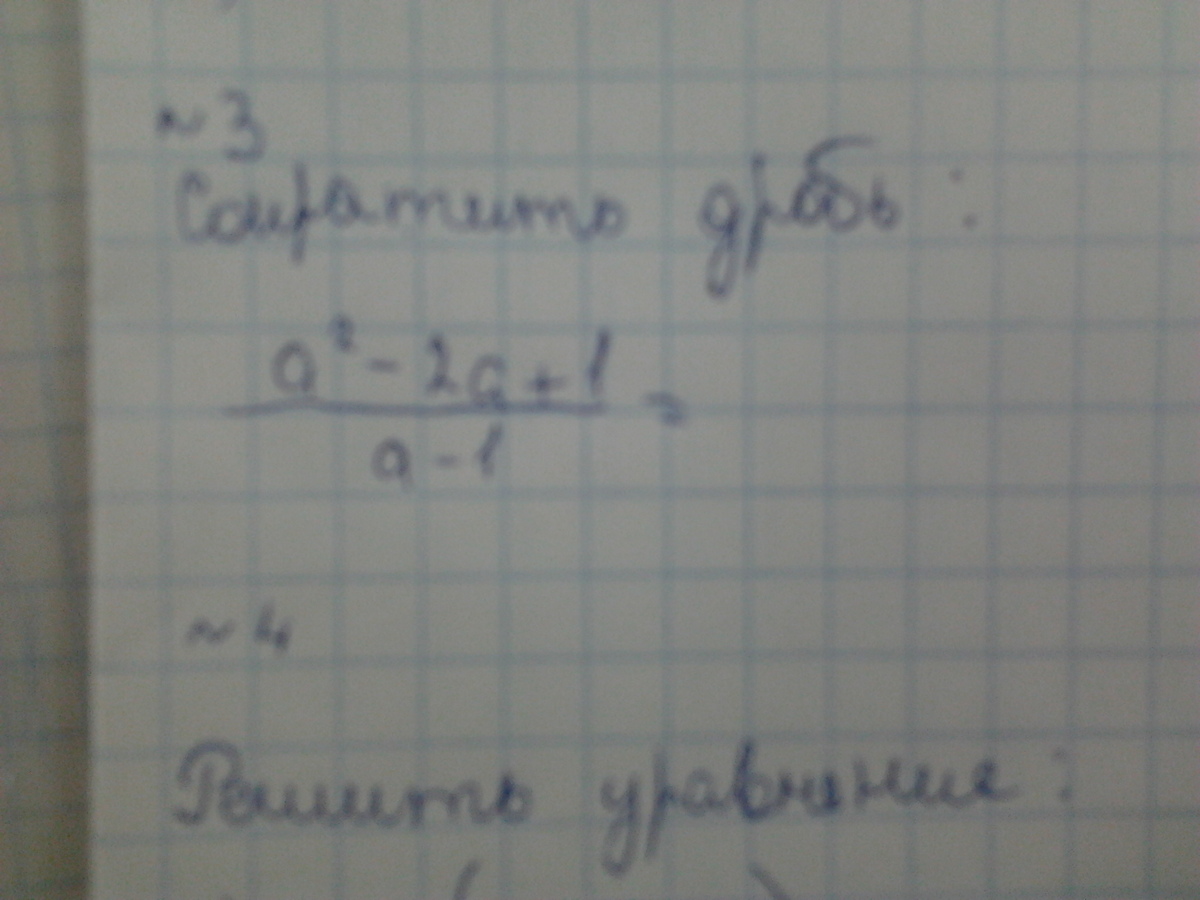 №3
Сократить дробь:
a² - 2a + 1
a - 1
=
№4
Решить уравнение: